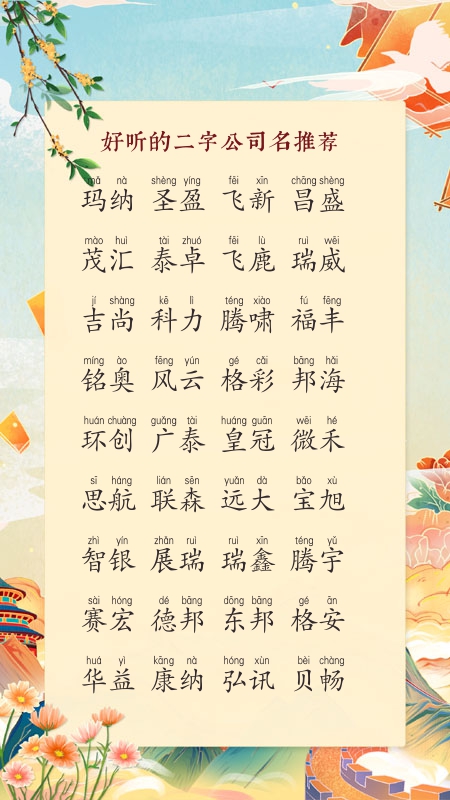 好听的二字公司名推荐
mǎ nà shèng yíng fēi xīn chāng shèng
玛纳 圣盈 飞新 昌盛
mào huì tài zhuó fēi lù ruì wēi
茂汇 泰卓 飞鹿 瑞威
jí shàng kē lì téng xiào fú fēng
吉尚 科力 腾啸 福丰
míng ào fēng yún gé cǎi bāng hǎi
铭奥 风云 格彩 邦海
huán chuàng guǎng tài huáng guān wēi hé
环创 广泰 皇冠 微禾
sī háng lián sēn yuǎn dà bǎo xù
思航 联森 远大 宝旭
zhì yín zhǎn ruì ruì xīn téng yǔ
智银 展瑞 瑞鑫 腾宇
sài hóng dé bāng dōng bāng gé ān
赛宏 德邦 东邦 格安
huá yì kāng nà hóng xùn bèi chàng
华益 康纳 弘讯 贝畅